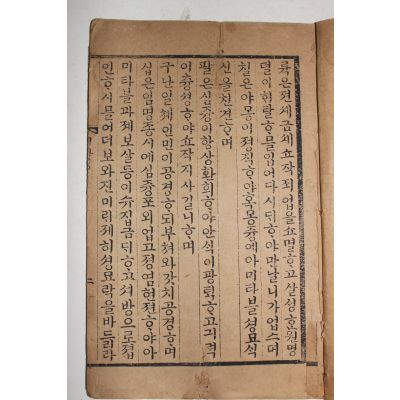 륙은젼셰금셰쇼작죄업을쇼멸ᄒᆞ고살싱ᄒᆞ원명
덜이협탈ᄒᆞ믈입어다시딕ᄒᆞ야만날니가업스며
칠은야몽이졍직ᄒᆞ야혹몽즁에아미타블셩묘식
신을친견ᄒᆞ며
팔은심즁이항상환희ᄒᆞ야안식이광퇵ᄒᆞ고긔력
이츙셩ᄒᆞ야쇼작지사길니ᄒᆞ며
구난일쳬인민이공경ᄒᆞ되부쳐와갓치공경ᄒᆞ며
십은임명종시에심즁포외업고졍염현젼ᄒᆞ야아
미타블과졔보살등이슈집금ᄃᆡᄒᆞ고셔방으로졉
인ᄒᆞ시믈어더보와진미릭졔히셩묘락을바듬릭라
二